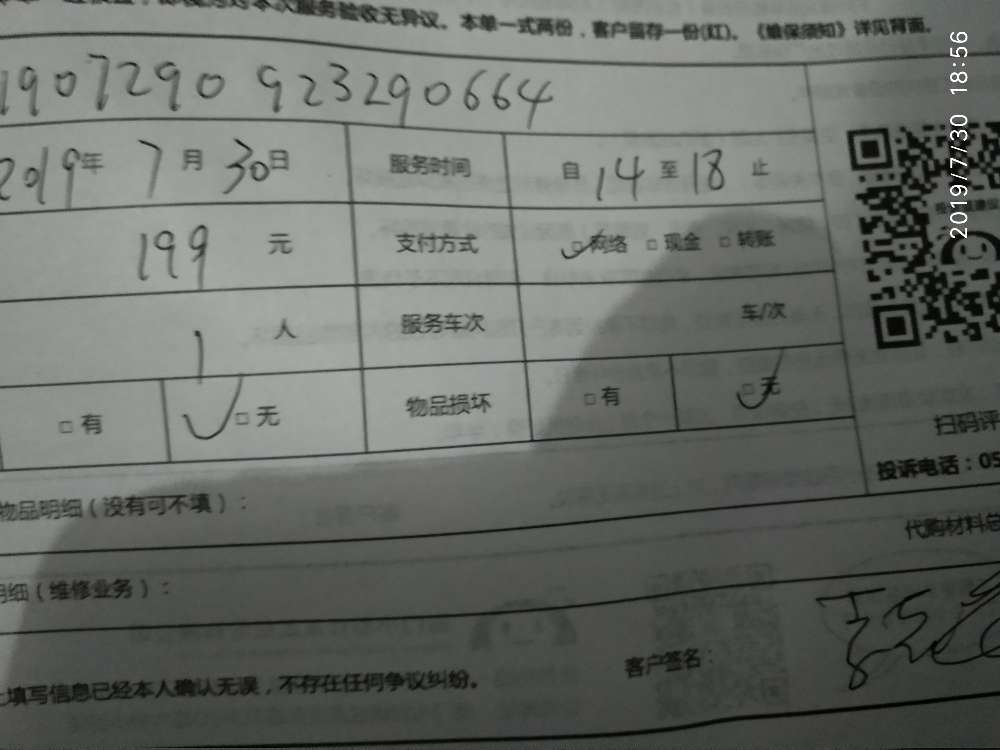 对本次服务验收无异议。本单一式两份，客户留存一份(红)。《维保须知》详见背面。
1907290923290664
2019年 7月 30日 服务时间 自 14 至 18 止
199 元 支付方式 ☑网络 □现金 □转账
1 人 服务车次 车/次
□有 ☑无 物品损坏 □有 ☑无
扫码评
投诉电话：05
物品明细（没有可不填）：
代购材料总
明细（维修业务）：
客户签名：
上填写信息已经本人确认无误，不存在任何争议纠纷。
2019/7/30 18:56